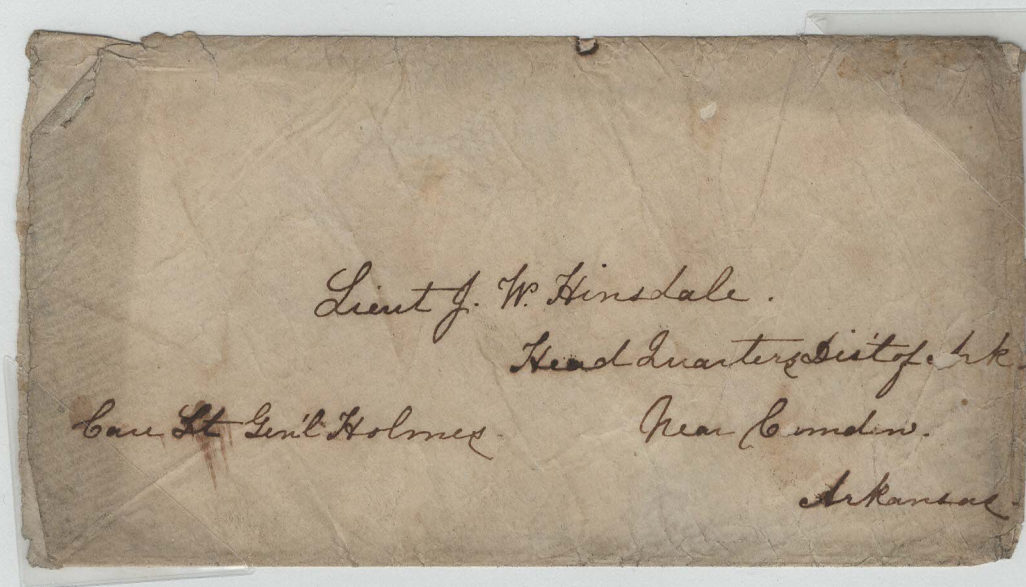 Lieut J. W. Hinsdale.
Head Quarters Dist of Ark.
Care Lt Gen'l Holmes. Near Comden.
Arkansas.